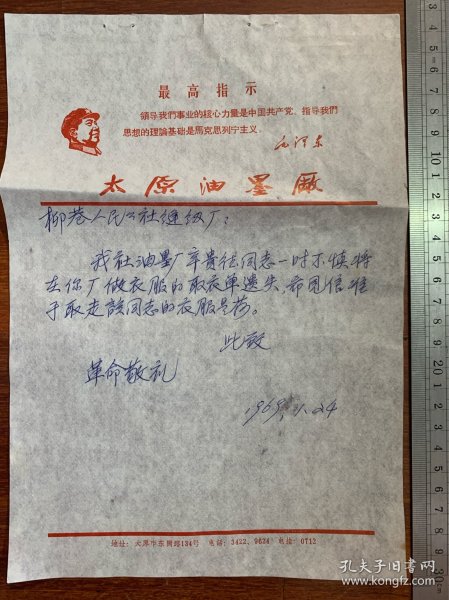 最高指示
領导我們事业的核心力量是中国共产党，指导我們
思想的理論基础是馬克思列宁主义。
毛泽东
太原油墨厰
柳巷人民公社缝纫厂：
我社油墨厂辛贵信同志一时不慎将
在你厂做衣服的取衣单遗失，希凭信准
于取走該同志的衣服是荷。
此致
革命敬礼
1969.1.24
地址：太原市东街134号 电话：3422、9624 电挂：0712
孔夫子旧书网
www.kongfz.com